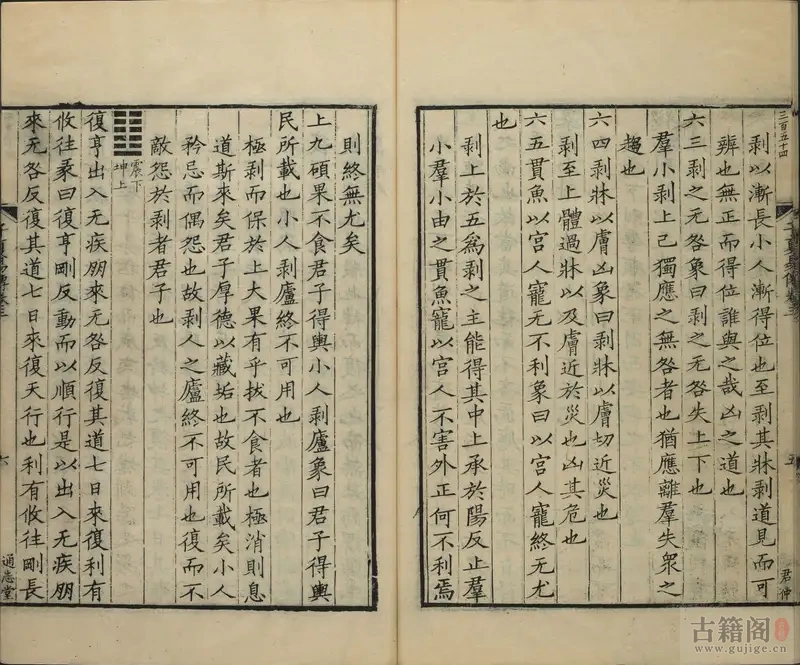 三百五十四
剥以漸長小人漸得位也至剥其牀剥道見而可
辨也無正而得位誰與之哉凶之道也
六三剥之无咎象曰剥之无咎失上下也
羣小剥上己獨應之無咎者也猶應離羣失衆之
趨也
六四剥牀以膚凶象曰剥牀以膚切近災也
剥至上體過牀以及膚近於災也凶其危也
六五貫魚以宮人寵无不利象曰以宮人寵終无尤
也
剥上於五為剥之主能得其中上承於陽反正羣
小羣小由之貫魚寵以宮人不害外正何不利焉
君仲
則終無尤矣
上九碩果不食君子得輿小人剥廬象曰君子得輿
民所載也小人剥廬終不可用也
極剥而保於上大果有乎拔不食者也極消則息
道斯來矣君子厚德以藏垢也故民所載矣小人
矜忌而偶怨也故剥人之廬終不可用也復而不
敵怨於剥者君子也
震下
坤上
復亨出入无疾朋來无咎反復其道七日來復利有
攸往彖曰復亨剛反動而以順行是以出入无疾朋
來无咎反復其道七日來復天行也利有攸往剛長
子夏易傳卷三
六
通志堂
古籍阁
www.gujige.cn